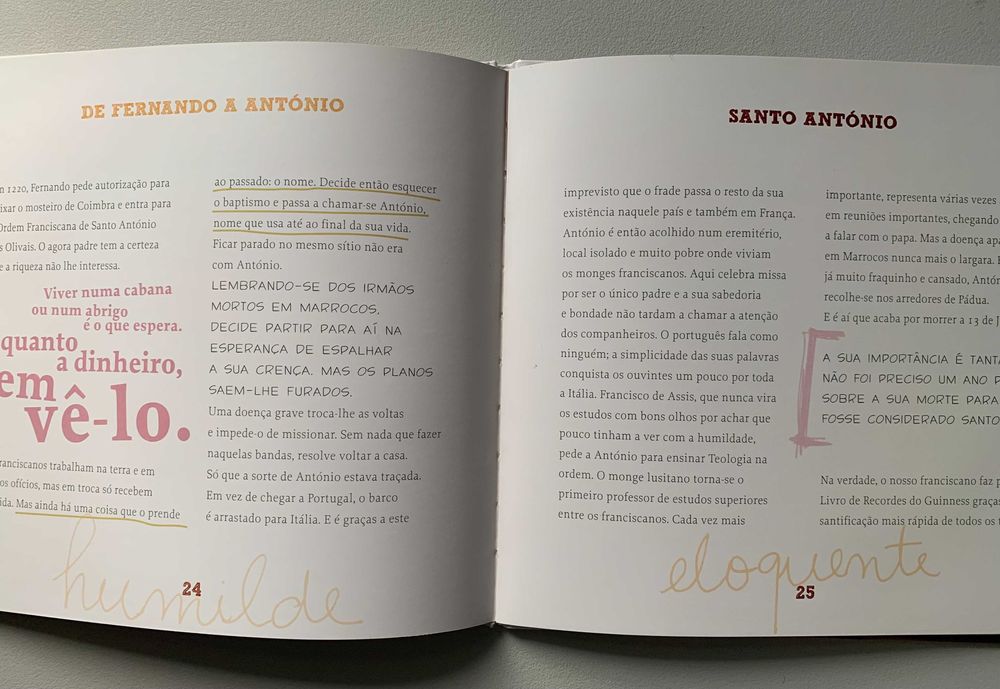 DE FERNANDO A ANTÓNIO
1220, Fernando pede autorização para
o mosteiro de Coimbra e entra para
Ordem Franciscana de Santo António
Olivais. O agora padre tem a certeza
a riqueza não lhe interessa.
Viver numa cabana
ou num abrigo
é o que espera.
quanto
a dinheiro,
vê-lo.
trabalham na terra e em
ofícios, mas em troca só recebem
Mas ainda há uma coisa que o prende
ao passado: o nome. Decide então esquecer
o baptismo e passa a chamar-se António,
nome que usa até ao final da sua vida.
Ficar parado no mesmo sítio não era
com António.
LEMBRANDO-SE DOS IRMÃOS
MORTOS EM MARROCOS,
DECIDE PARTIR PARA AÍ NA
ESPERANÇA DE ESPALHAR
A SUA CRENÇA. MAS OS PLANOS
SAEM-LHE FURADOS.
Uma doença grave troca-lhe as voltas
e impede-o de missionar. Sem nada que fazer
naquelas bandas, resolve voltar a casa.
Só que a sorte de António estava traçada.
Em vez de chegar a Portugal, o barco
é arrastado para Itália. E é graças a este
humilde
24
SANTO ANTÓNIO
imprevisto que o frade passa o resto da sua
existência naquele país e também em França.
António é então acolhido num eremitério,
local isolado e muito pobre onde viviam
os monges franciscanos. Aqui celebra missa
por ser o único padre e a sua sabedoria
e bondade não tardam a chamar a atenção
dos companheiros. O português fala como
ninguém; a simplicidade das suas palavras
conquista os ouvintes um pouco por toda
a Itália. Francisco de Assis, que nunca vira
os estudos com bons olhos por achar que
pouco tinham a ver com a humildade,
pede a António para ensinar Teologia na
ordem. O monge lusitano torna-se o
primeiro professor de estudos superiores
entre os franciscanos. Cada vez mais
importante, representa várias vezes
em reuniões importantes, chegando
a falar com o papa. Mas a doença
em Marrocos nunca mais o largara.
já muito fraquinho e cansado,
recolhe-se nos arredores de Pádua.
E é aí que acaba por morrer a 13 de
A SUA IMPORTÂNCIA É
NÃO FOI PRECISO UM ANO
SOBRE A SUA MORTE PARA
FOSSE CONSIDERADO SANTO
Na verdade, o nosso franciscano faz
Livro de Recordes do Guinness
santificação mais rápida de todos os
eloquente
25